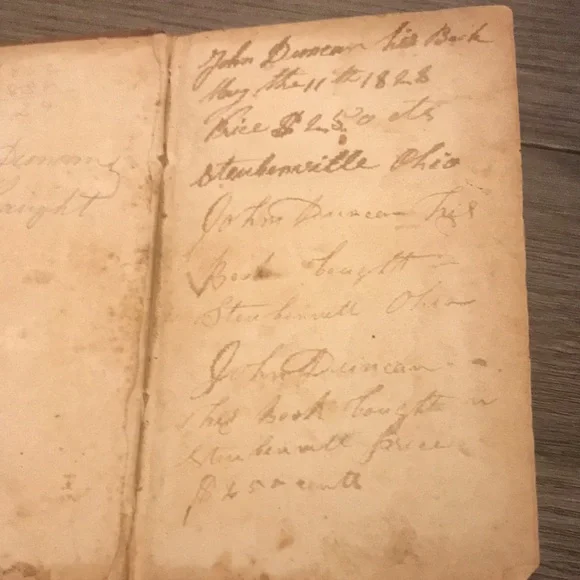 Duncan
bought
John Duncan his Book
May the 11th 1828
Price $ 2.50 cts
Steubenville Ohio
John Duncan his
Book bought
Steubenvill Ohio
John Duncan
his Book bought in
Steubenvill price
$ 250 cents